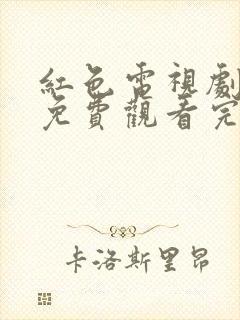 紅色電視劇
免費觀看完
卡洛斯里昂